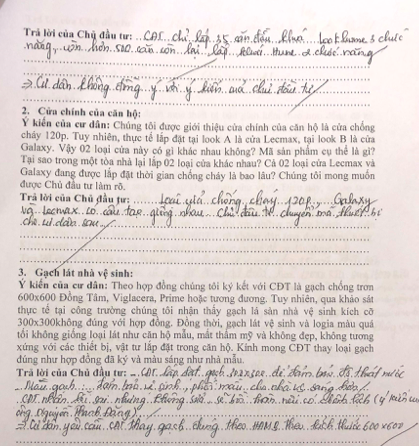 Trả lời của Chủ đầu tư: CĐT chỉ lắp 35 căn đầu khoá 3 chức
năng, còn hơn 500 căn còn lại lắp khoá 2 chức năng
=> Cư dân không đồng ý với ý kiến của chủ đầu tư
2. Cửa chính của căn hộ:
Ý kiến của cư dân: Chúng tôi được giới thiệu cửa chính của căn hộ là cửa chống
cháy 120p. Tuy nhiên, thực tế lắp đặt tại look A là cửa Lecmax, tại look B là cửa
Galaxy. Vậy 02 loại cửa này có gì khác nhau không? Mã sản phẩm cụ thể là gì?
Tại sao trong một tòa nhà lại lắp 02 loại cửa khác nhau? Cả 02 loại cửa Lecmax và
Galaxy đang được lắp đặt thời gian chống cháy là bao lâu? Chúng tôi mong muốn
được Chủ đầu tư làm rõ.
Trả lời của Chủ đầu tư: Loại cửa chống cháy 120p, Galaxy
và Lecmax có cấu tạo giống nhau. Chủ đầu tư chuyển mã thiết bị
cho cư dân sau
3. Gạch lát nhà vệ sinh:
Ý kiến của cư dân: Theo hợp đồng chúng tôi ký kết với CĐT là gạch chống trơn
600x600 Đồng Tâm, Viglacera, Prime hoặc tương đương. Tuy nhiên, qua khảo sát
thực tế tại công trường chúng tôi nhận thấy gạch lá sàn nhà vệ sinh kích cỡ
300x300không đúng với hợp đồng. Đồng thời, gạch lát vệ sinh và logia màu quá
tối không giống loại lát như căn hộ mẫu, mất thẩm mỹ và không đẹp, không tương
xứng với các thiết bị, vật tư lắp đặt trong căn hộ. Kính mong CĐT thay loại gạch
đúng như hợp đồng đã ký và màu sáng như nhà mẫu.
Trả lời của Chủ đầu tư: CĐT lắp đặt gạch 300x300 để đảm bảo độ thoát nước
Màu gạch đảm bảo vệ sinh,
CĐT nhận sai
ông Nguyễn Thanh
=> Cư dân yêu cầu CĐT thay gạch đúng theo HĐMB theo kích thước 600x600